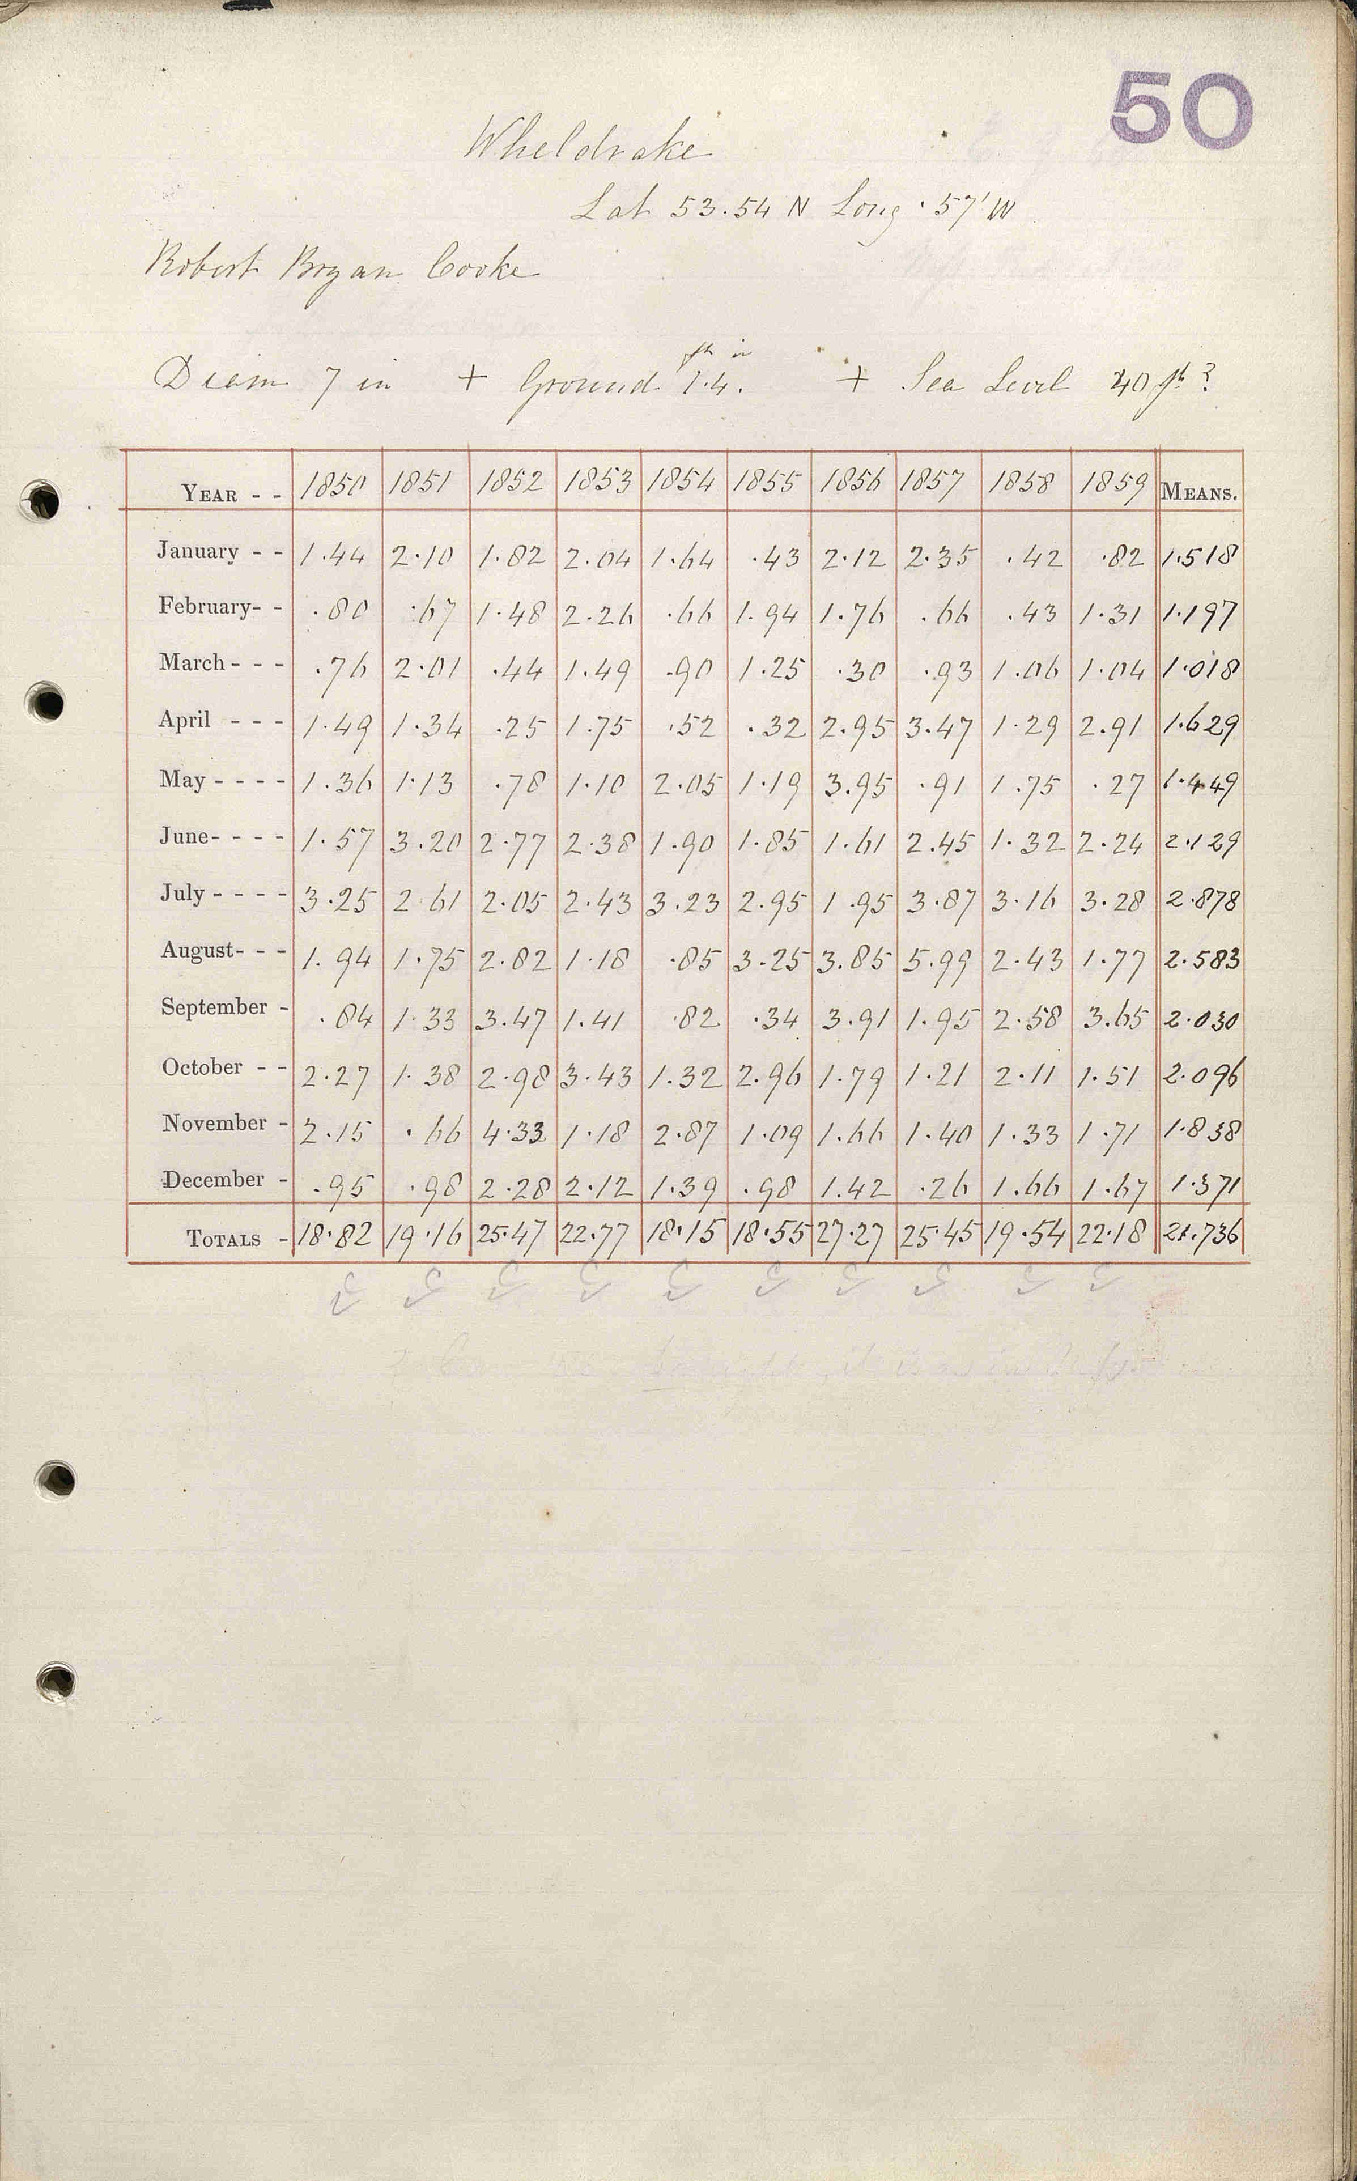 50
Wheldrake
Lat 53.54 N Long · 57' W
Robert Bryan Cooke
ft in
Diam 7 in + Ground 1.4. + Sea Level 40 ft ?
YEAR - - 1850 1851 1852 1853 1854 1855 1856 1857 1858 1859 MEANS.
January - - 1.44 2.10 1.82 2.04 1.64 .43 2.12 2.35 .42 .82 1.518
February- - .80 .67 1.48 2.26 .66 1.94 1.76 .66 .43 1.31 1.197
March - - - .76 2.01 .44 1.49 .90 1.25 .30 .93 1.06 1.04 1.018
April - - - 1.49 1.34 .25 1.75 .52 .32 2.95 3.47 1.29 2.91 1.629
May - - - - 1.36 1.13 .78 1.10 2.05 1.19 3.95 .91 1.75 .27 1.449
June- - - - 1.57 3.20 2.77 2.38 1.90 1.85 1.61 2.45 1.32 2.24 2.129
July - - - - 3.25 2.61 2.05 2.43 3.23 2.95 1.95 3.87 3.16 3.28 2.878
August- - - 1.94 1.75 2.82 1.18 .85 3.25 3.85 5.99 2.43 1.77 2.583
September - .84 1.33 3.47 1.41 .82 .34 3.91 1.95 2.58 3.65 2.030
October - - 2.27 1.38 2.98 3.43 1.32 2.96 1.79 1.21 2.11 1.51 2.096
November - 2.15 .66 4.33 1.18 2.87 1.09 1.66 1.40 1.33 1.71 1.838
December - .95 .98 2.28 2.12 1.39 .98 1.42 .26 1.66 1.67 1.371
TOTALS - 18.82 19.16 25.47 22.77 18.15 18.55 27.27 25.45 19.54 22.18 21.736